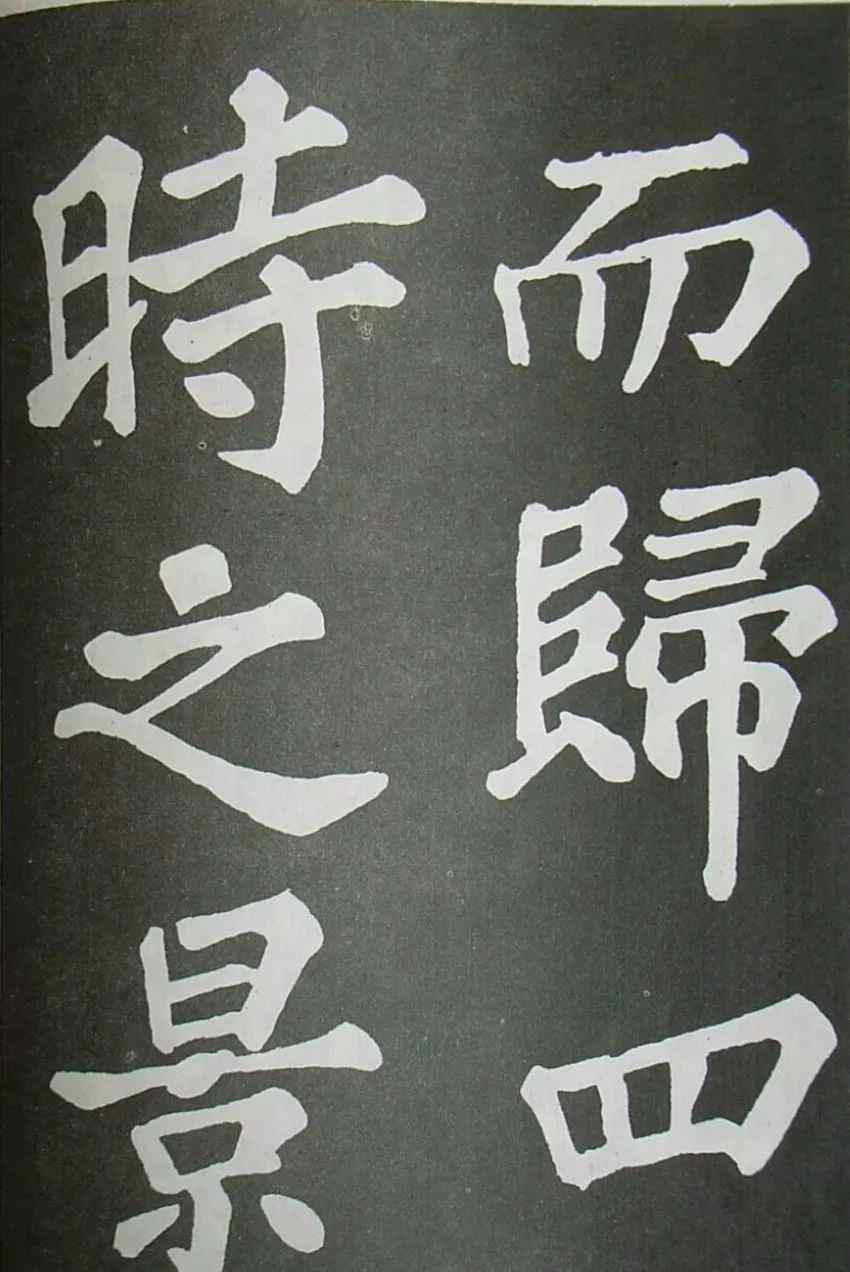 而歸四
時之景